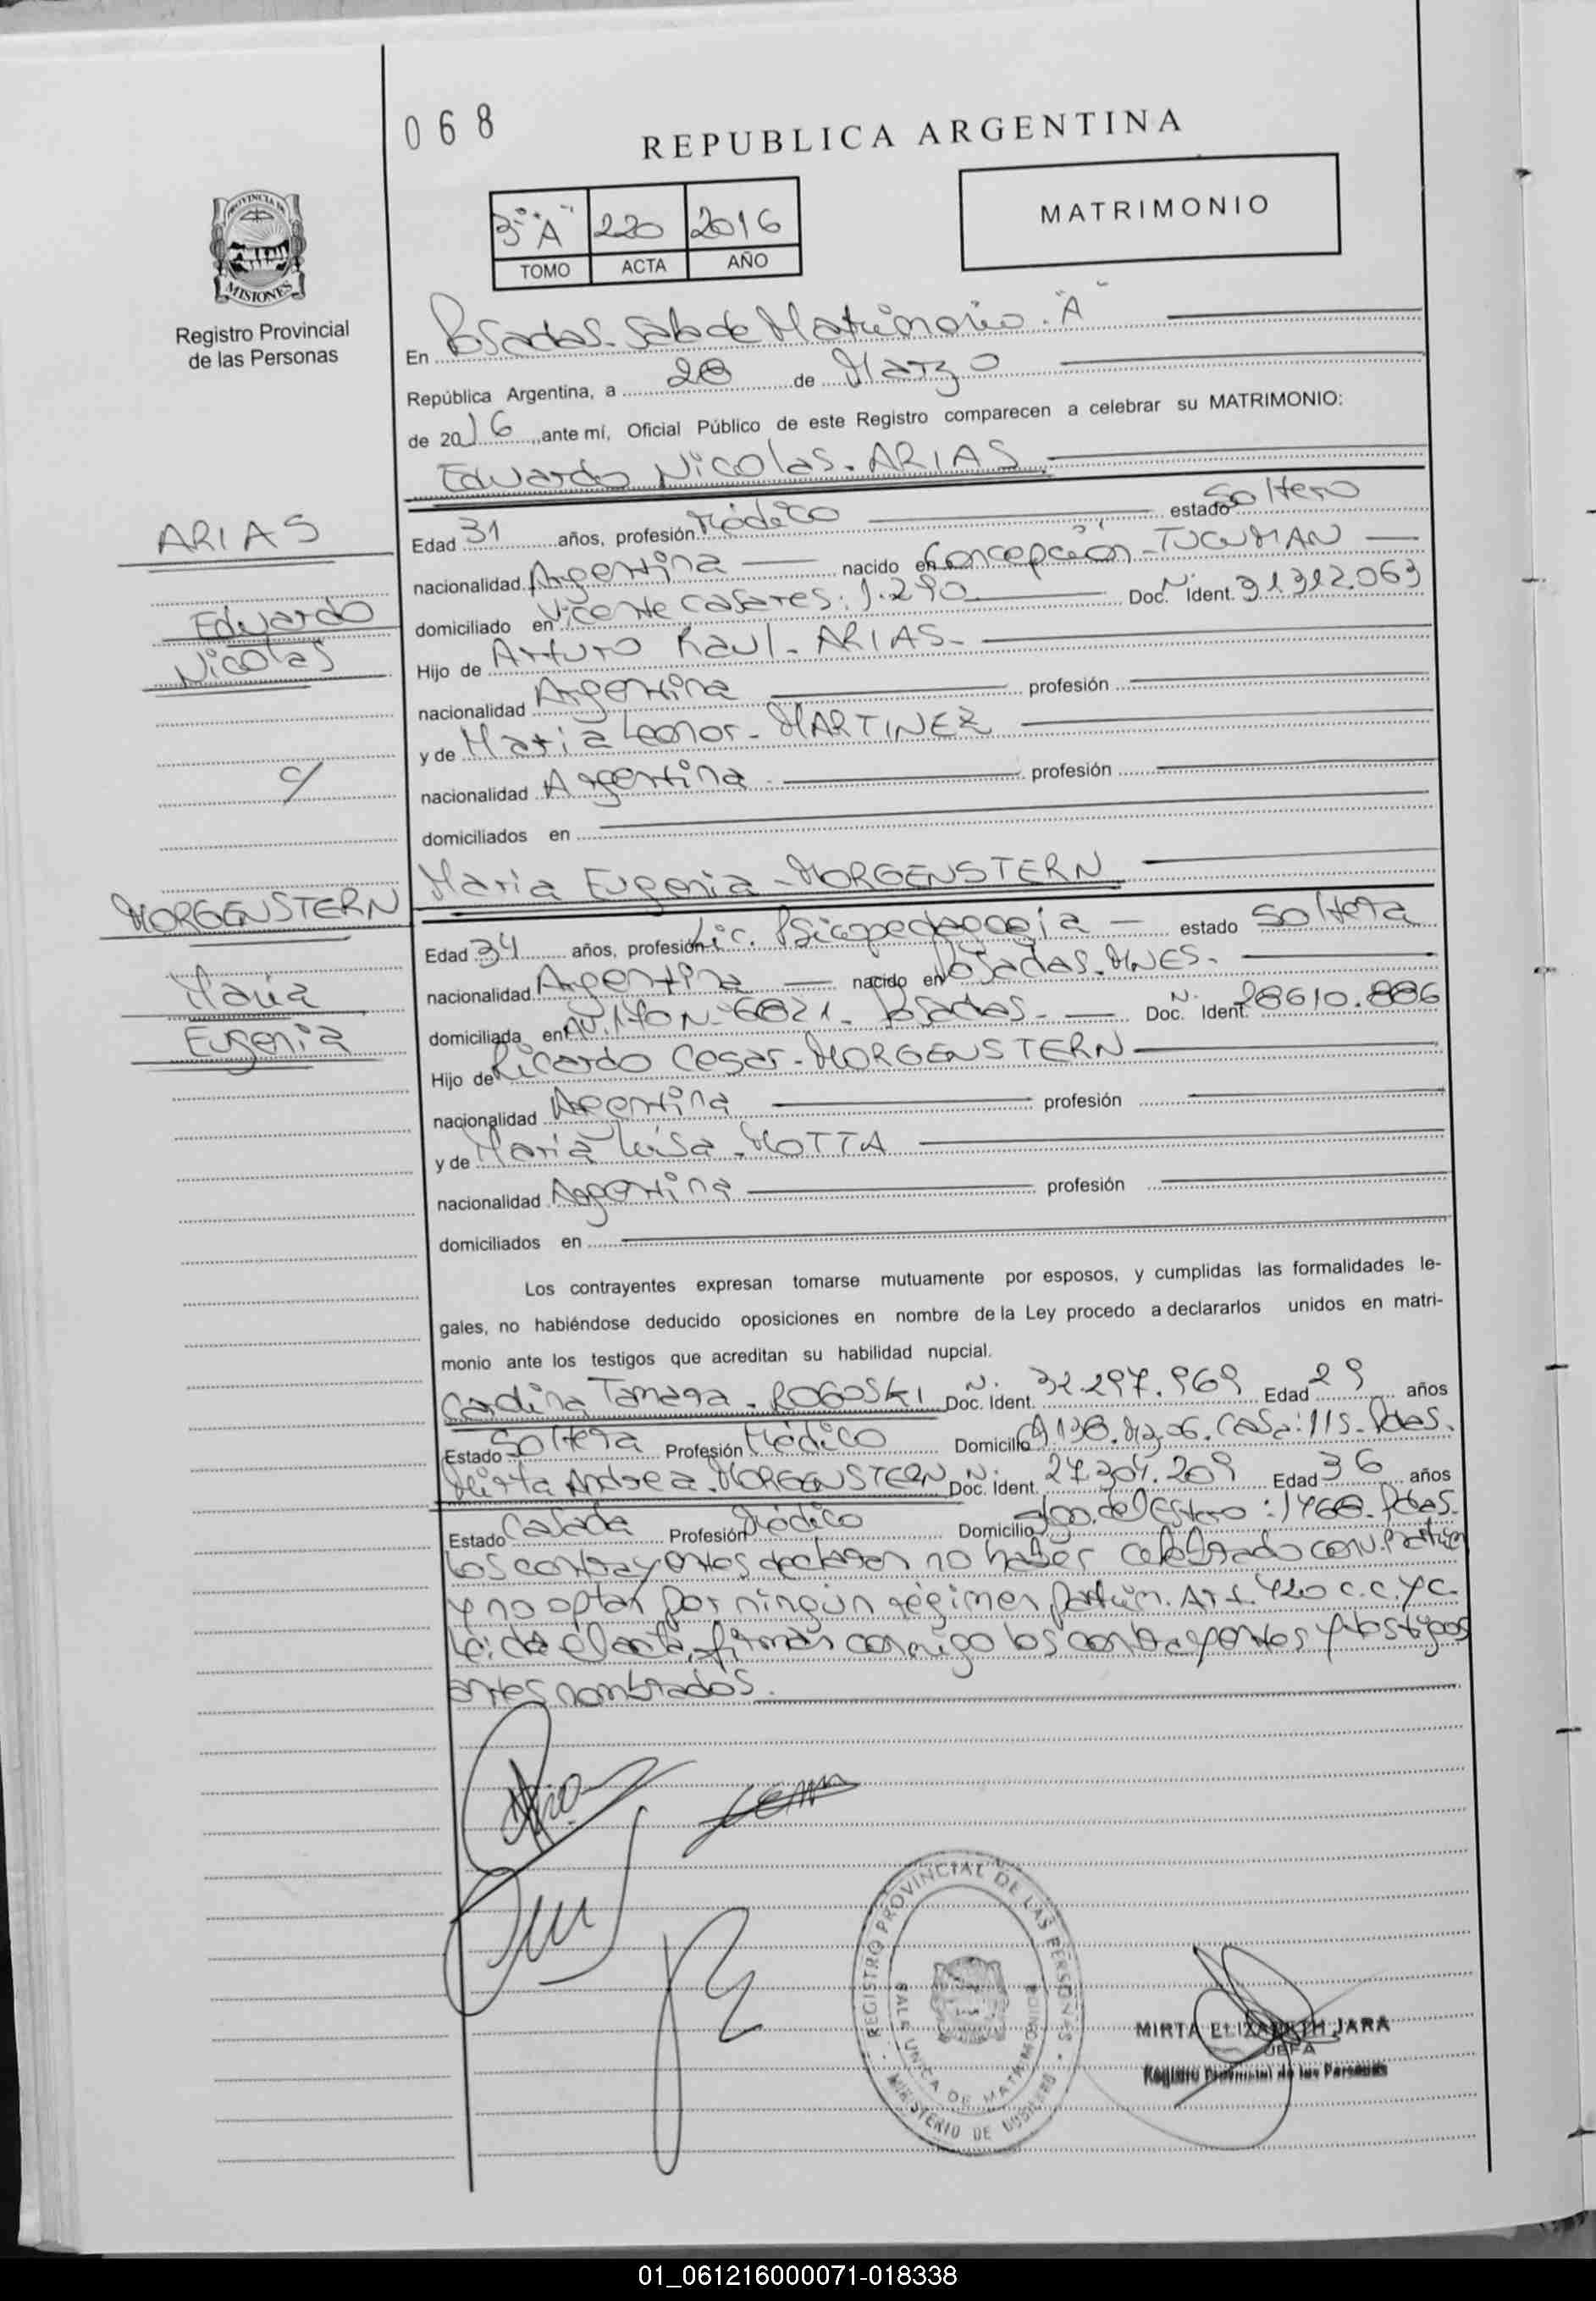 068
REPUBLICA ARGENTINA
3º "A" 220 2016
TOMO ACTA AÑO
MATRIMONIO
PROVINCIA DE
MISIONES
Registro Provincial
de las Personas
En Posadas - Sala de Matrimonio "A"
República Argentina, a 28 de Marzo
de 2016, ante mí, Oficial Público de este Registro comparecen a celebrar su MATRIMONIO:
Eduardo Nicolas - ARIAS
ARIAS
Eduardo
Nicolas
c/
MORGENSTERN
Maria
Eugenia
Edad 31 años, profesión Médico estado Soltero
nacionalidad Argentina nacido en Concepción - TUCUMAN
domiciliado en Vicente Casares: 1.290 Doc. N. Ident. 31.312.063
Hijo de Arturo Raul - ARIAS -
nacionalidad Argentina profesión
y de Maria Leonor - MARTINEZ
nacionalidad Argentina profesión
domiciliados en
Maria Eugenia - MORGENSTERN
Edad 34 años, profesión Lic. Psicopedagogia estado Soltera
nacionalidad Argentina nacido en Posadas - MNES.
domiciliada en Nº 6821 - Posadas - Doc. N. Ident. 28610.886
Hijo de Ricardo Cesar - MORGENSTERN
nacionalidad Argentina profesión
y de Maria Luisa - MOTTA
nacionalidad Argentina profesión
domiciliados en
Los contrayentes expresan tomarse mutuamente por esposos, y cumplidas las formalidades le-
gales, no habiéndose deducido oposiciones en nombre de la Ley procedo a declararlos unidos en matri-
monio ante los testigos que acreditan su habilidad nupcial.
Carolina Tamara - ROGOSKI Doc. N. Ident. 32.297.969 Edad 29 años
Estado Soltera Profesión Médico Domicilio Casa: 115 - Pdas.
Mirta Andrea - MORGENSTERN Doc. N. Ident. 27.304.209 Edad 36 años
Estado Casada Profesión Médico Domicilio Sgo. del Estero: 1468 - Pdas.
Los contrayentes declaran no haber celebrado conv.
y no optar por ningún régimen patrim. Art. 420 C.C.yC.
Leída el acta, firman conmigo los contrayentes y testigos
antes nombrados.
REGISTRO PROVINCIAL DE LAS PERSONAS
SALA UNICA DE MATRIMONIO
MINISTERIO DE GOBIERNO
MIRTA ELIZABETH JARA
JEFA
Registro Provincial de las Personas
01_061216000071-018338